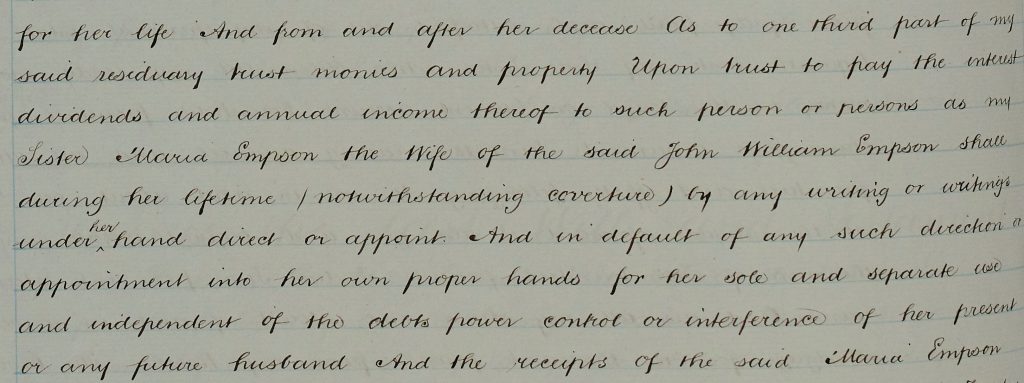 for her life And from and after her decease As to one third part of my
said residuary trust monies and property Upon trust to pay the interest
dividends and annual income thereof to such person or persons as my
Sister Maria Empson the Wife of the said John William Empson shall
during her lifetime (notwithstanding coverture) by any writing or writings
under her hand direct or appoint. And in default of any such direction or
appointment into her own proper hands for her sole and separate use
and independent of the debts power control or interference of her present
or any future husband And the receipts of the said Maria Empson